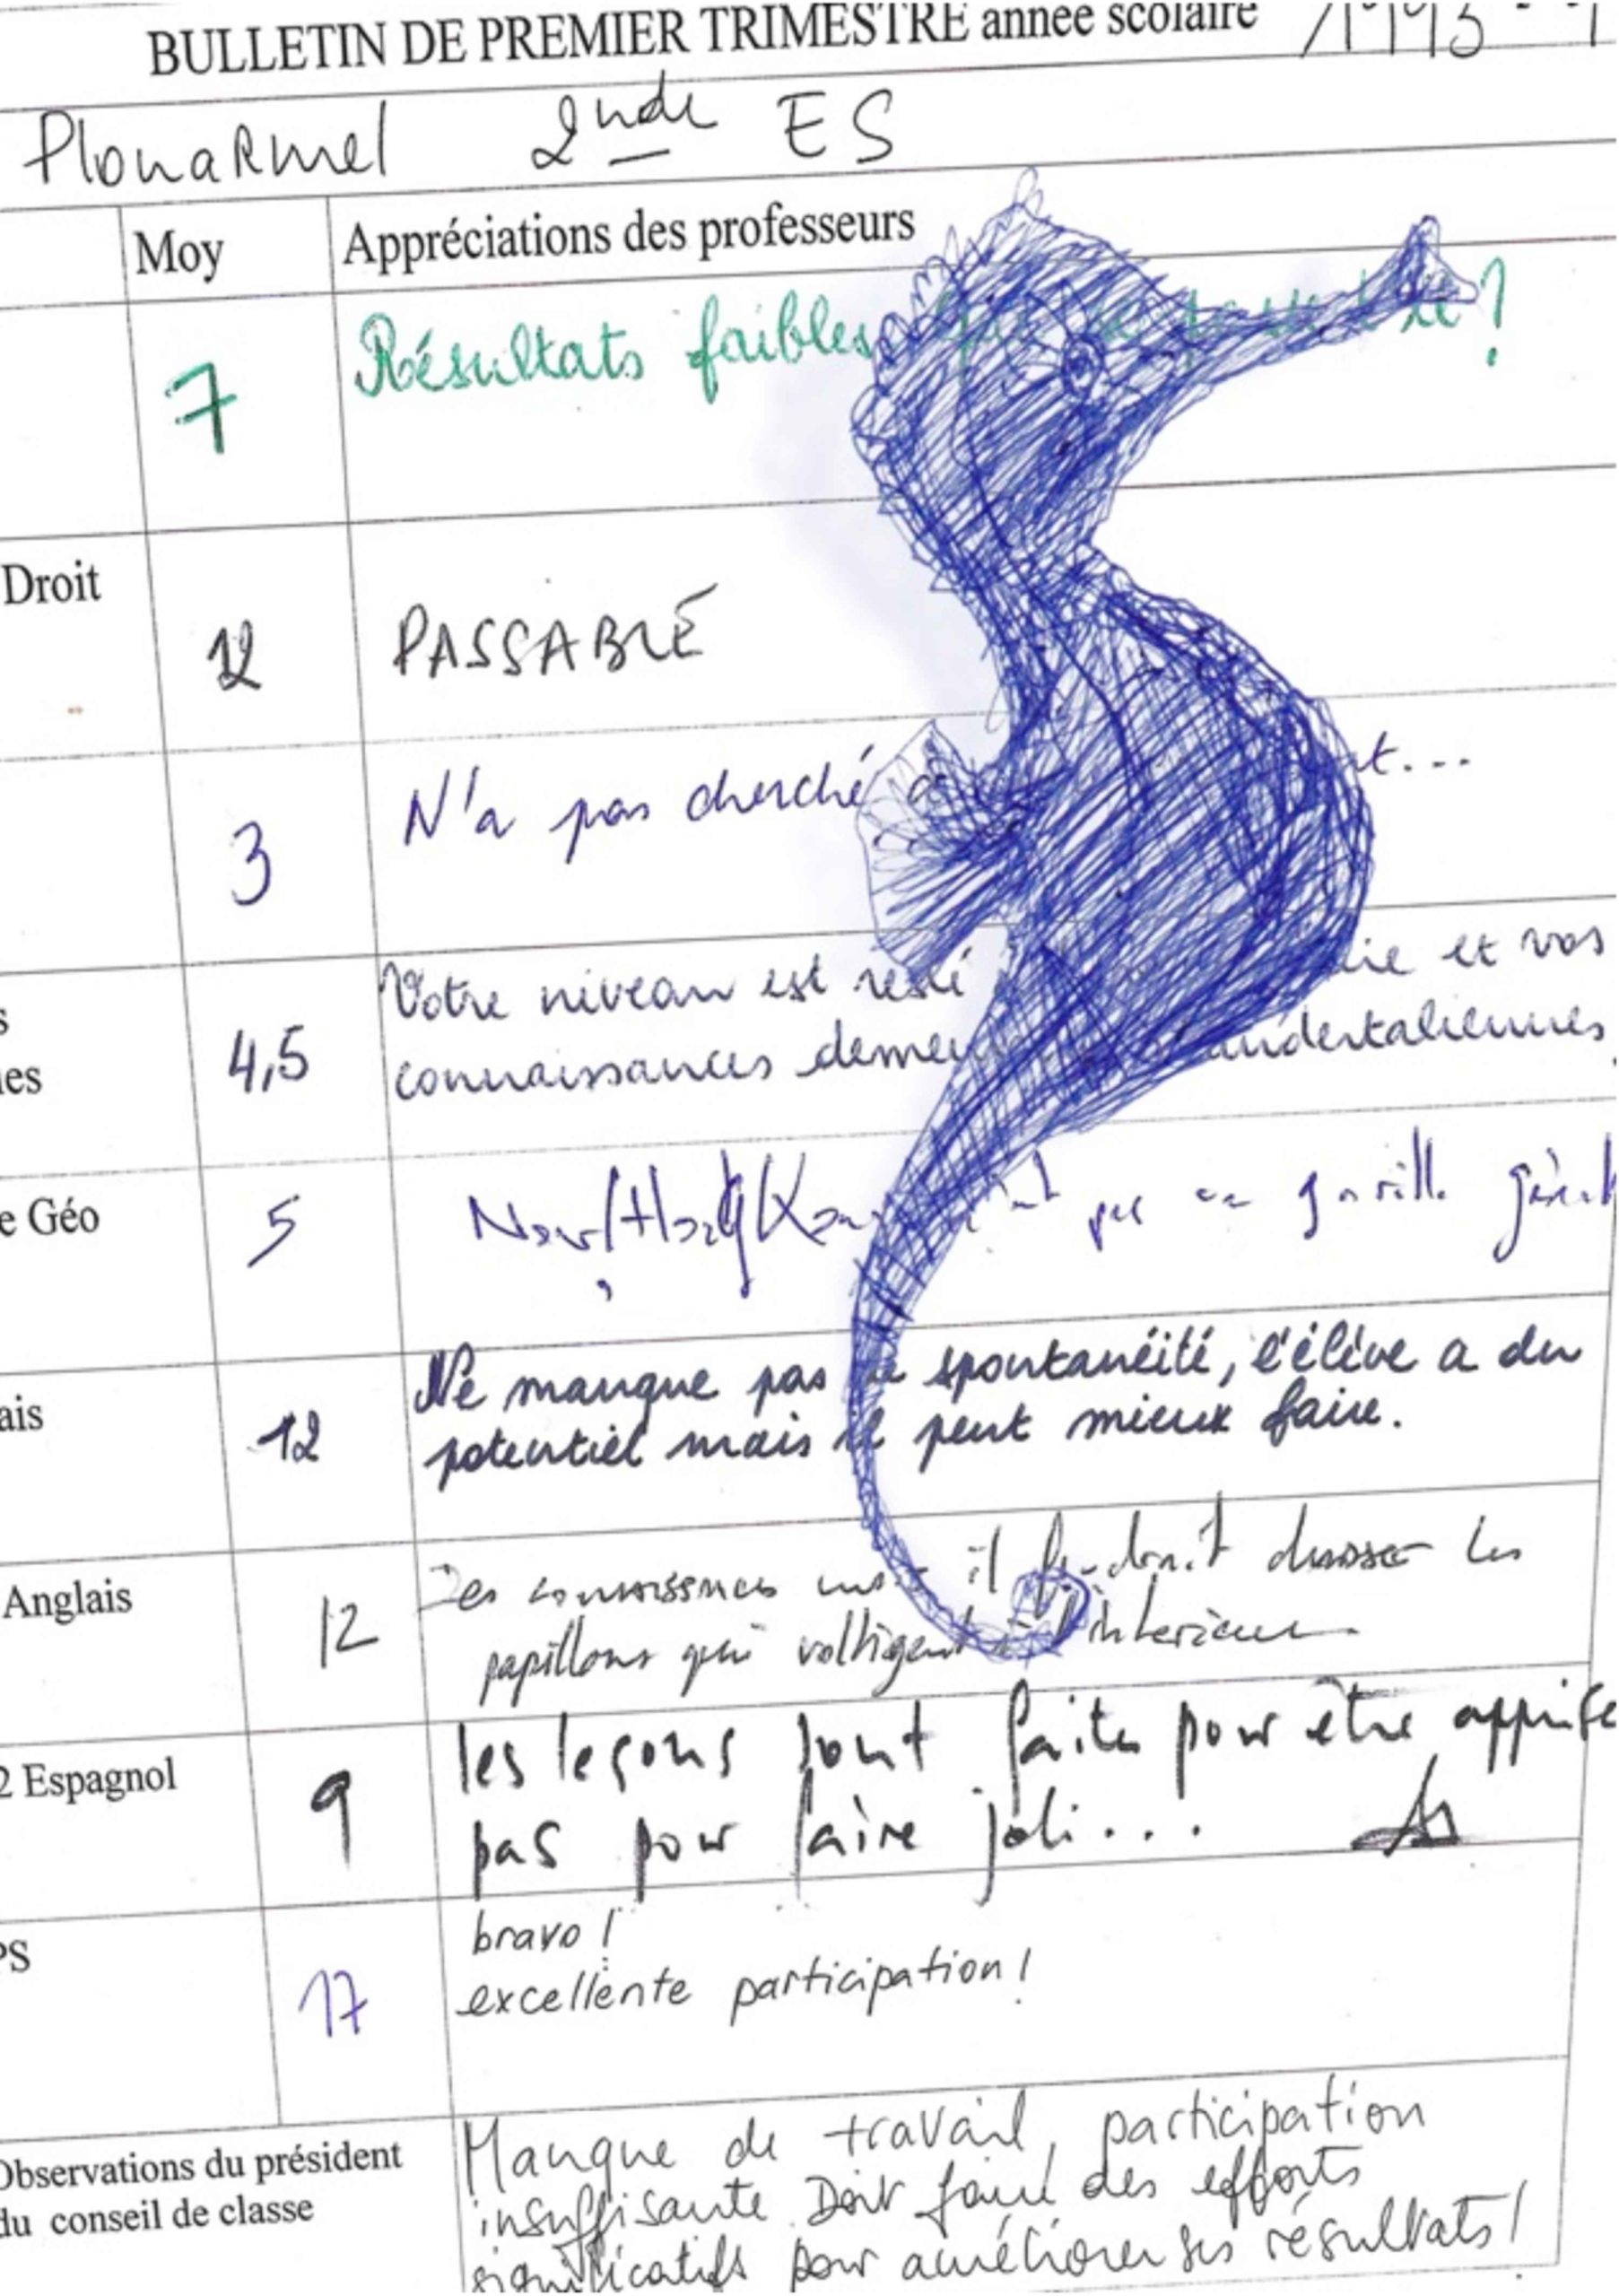 BULLETIN DE PREMIER TRIMESTRE année scolaire 1993-
Plouarmel 2nde ES
Moy Appréciations des professeurs
7 Résultats faibles ?
Droit 12 PASSABLE
3 N'a pas cherché à t...
4,5 Votre niveau est resté et vos
connaissances
e Géo 5 par un gorille
ais 12 Ne manque pas de spontanéité, l'élève a du
potentiel mais il peut mieux faire.
Anglais 12 Des connaissances mais il faudrait chasser les
papillons qui voltigent à l'intérieur
2 Espagnol 9 les leçons sont faites pour être apprise
pas pour faire joli...
PS 17 bravo !
excellente participation !
Observations du président
du conseil de classe
Manque de travail, participation
insuffisante. Doit faire des efforts
significatifs pour améliorer ses résultats !